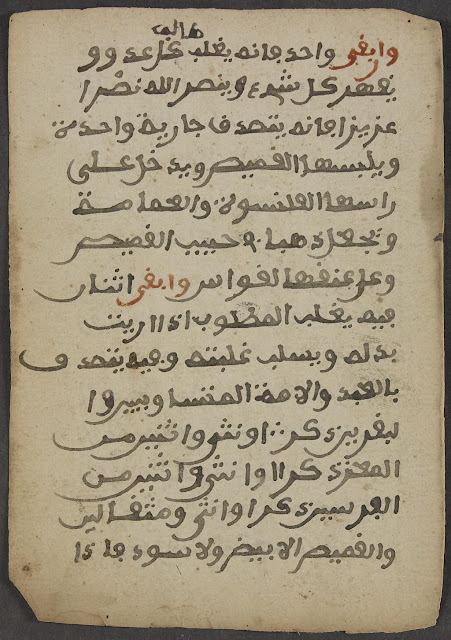 طالب
وابقى واحد فانه يغلب كل عدوو
يقهر كل شيء وينصر الله نصرا
عزيزا فانه يتصدق جارية واحدة
ويلبسها القميص ويدخل على
راسها القلنسوة والعمامة
وتجعل ذهبا في جيب القميص
وعلى عنقها القواس وابقى اثنان
فيه يغلب المطلوب اذا اريت
بذله وبسلب غلبته وفيه يتصدق
بالعبد والامة
اونثى واثنين من
المعزى ذكرا اوانثى واثنين من
ذكرا اوانثى ومثقالين
والقميص الابيض ولاسود فاذا